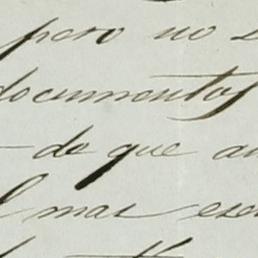 pero no
documentos
de que
mas